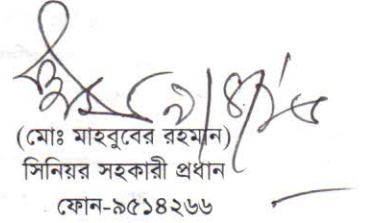 (মোঃ মাহবুবের রহমান)
সিনিয়র সহকারী প্রধান
ফোন-৯৫১৪২৬৬